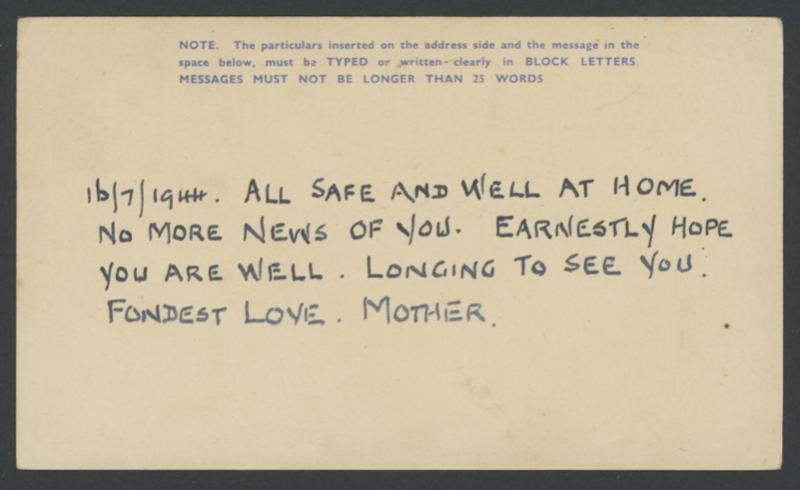 NOTE. The particulars inserted on the address side and the message in the
space below, must be TYPED or written clearly in BLOCK LETTERS.
MESSAGES MUST NOT BE LONGER THAN 25 WORDS
16/7/1944. ALL SAFE AND WELL AT HOME.
NO MORE NEWS OF YOU. EARNESTLY HOPE
YOU ARE WELL. LONGING TO SEE YOU.
FONDEST LOVE. MOTHER.